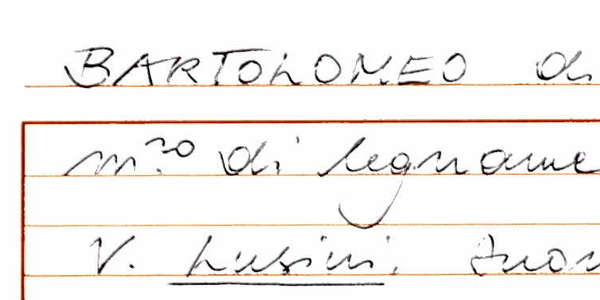 BARTOLOMEO di
m.ro di legname
V. Lusini,